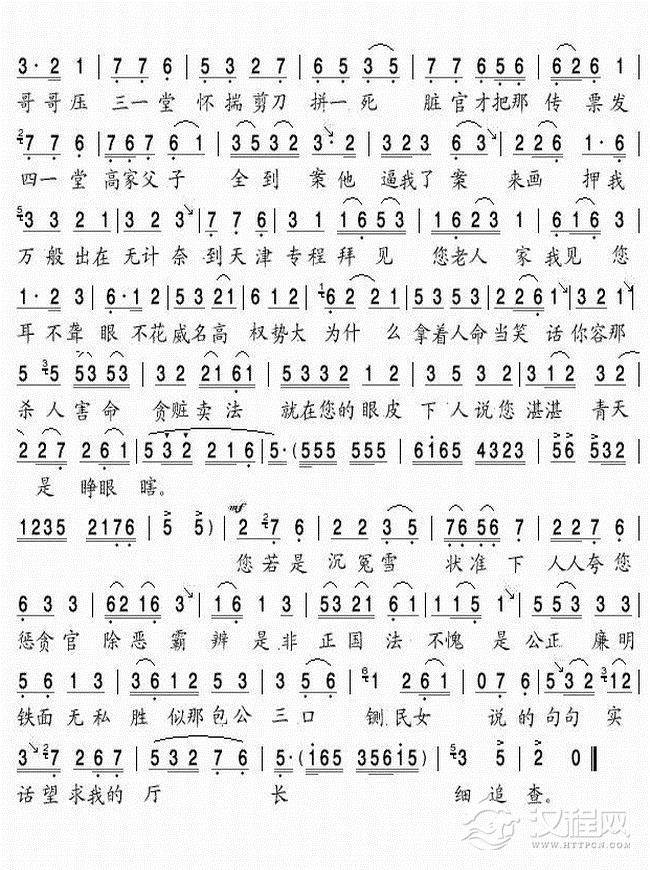 3·2 1 | 7 7 6 | 5 3 2 7 | 6 5 3 5 | 7 7 6 5 6 | 6 2 6 1 |
哥哥压 三一堂 怀揣剪刀 拼一死 脏官才把那 传票发
2 7 7 6 | 7 6 7 6 1 | 3 5 3 2 3·2 | 3 2 2 6 3 | 2 2 6 1·6 |
四一堂 高家父子 全到案他 逼我了案 来画押我
5 3 3 2 1 | 3 2 3 | 7 7 6 | 3 1 1 6 5 3 | 1 6 2 3 1 | 6 1 6 3 |
万般出在 无计奈到天津专程拜见 您老人家我见您
1·2 3 | 6·1 2 | 5 3 2 1 | 6 1 2 | 1 6 2 2 1 | 5 3 5 3 | 2 2 6 1 | 3 2 1 |
耳不聋眼不花威名高权势大为什么拿着人命当笑话你容那
5 3 5 5 3 5 3 | 3 2 2 1 6 1 | 5 3 3 2 1 2 | 3 5 3 2 | 3 1 2 3 2 |
杀人害命 贪赃卖法 就在您的眼皮下人说您湛湛青天
2 2 7 2 6 1 | 5 3 2 2 1 6 | 5·(5 5 5 5 5 5 | 6 1 6 5 4 3 2 3 | 5 6 5 3 2 |
是睁眼瞎。
1 2 3 5 2 1 7 6 | 5 5) | mf 2 2 7 6 | 2 2 3 5 | 7 6 5 6 7 | 2 2 7 6 |
您若是沉冤雪 状准下人人夸您
6 3 3 | 6 2 1 6 3 | 1 6 1 3 | 5 3 2 1 6 1 | 1 1 5 1 | 5 5 3 3 3 |
惩贪官 除恶霸辨是非正国法不愧是公正廉明
5 6 1 3 | 3 6 1 2 5 3 | 3 5 6 | 6 1 2 6 1 | 0 7 6 | 5 3 2 3 1 2 |
铁面无私胜似那包公三口 铡民女 说的句句实
3 2 7 2 6 7 | 5 3 2 7 6 | 5·(i 6 5 3 5 6 1 5) | 5 3 5 | 2 0 ‖
话望求我的厅 长 细追查。
汉程网
WWW.HTTPCN.COM